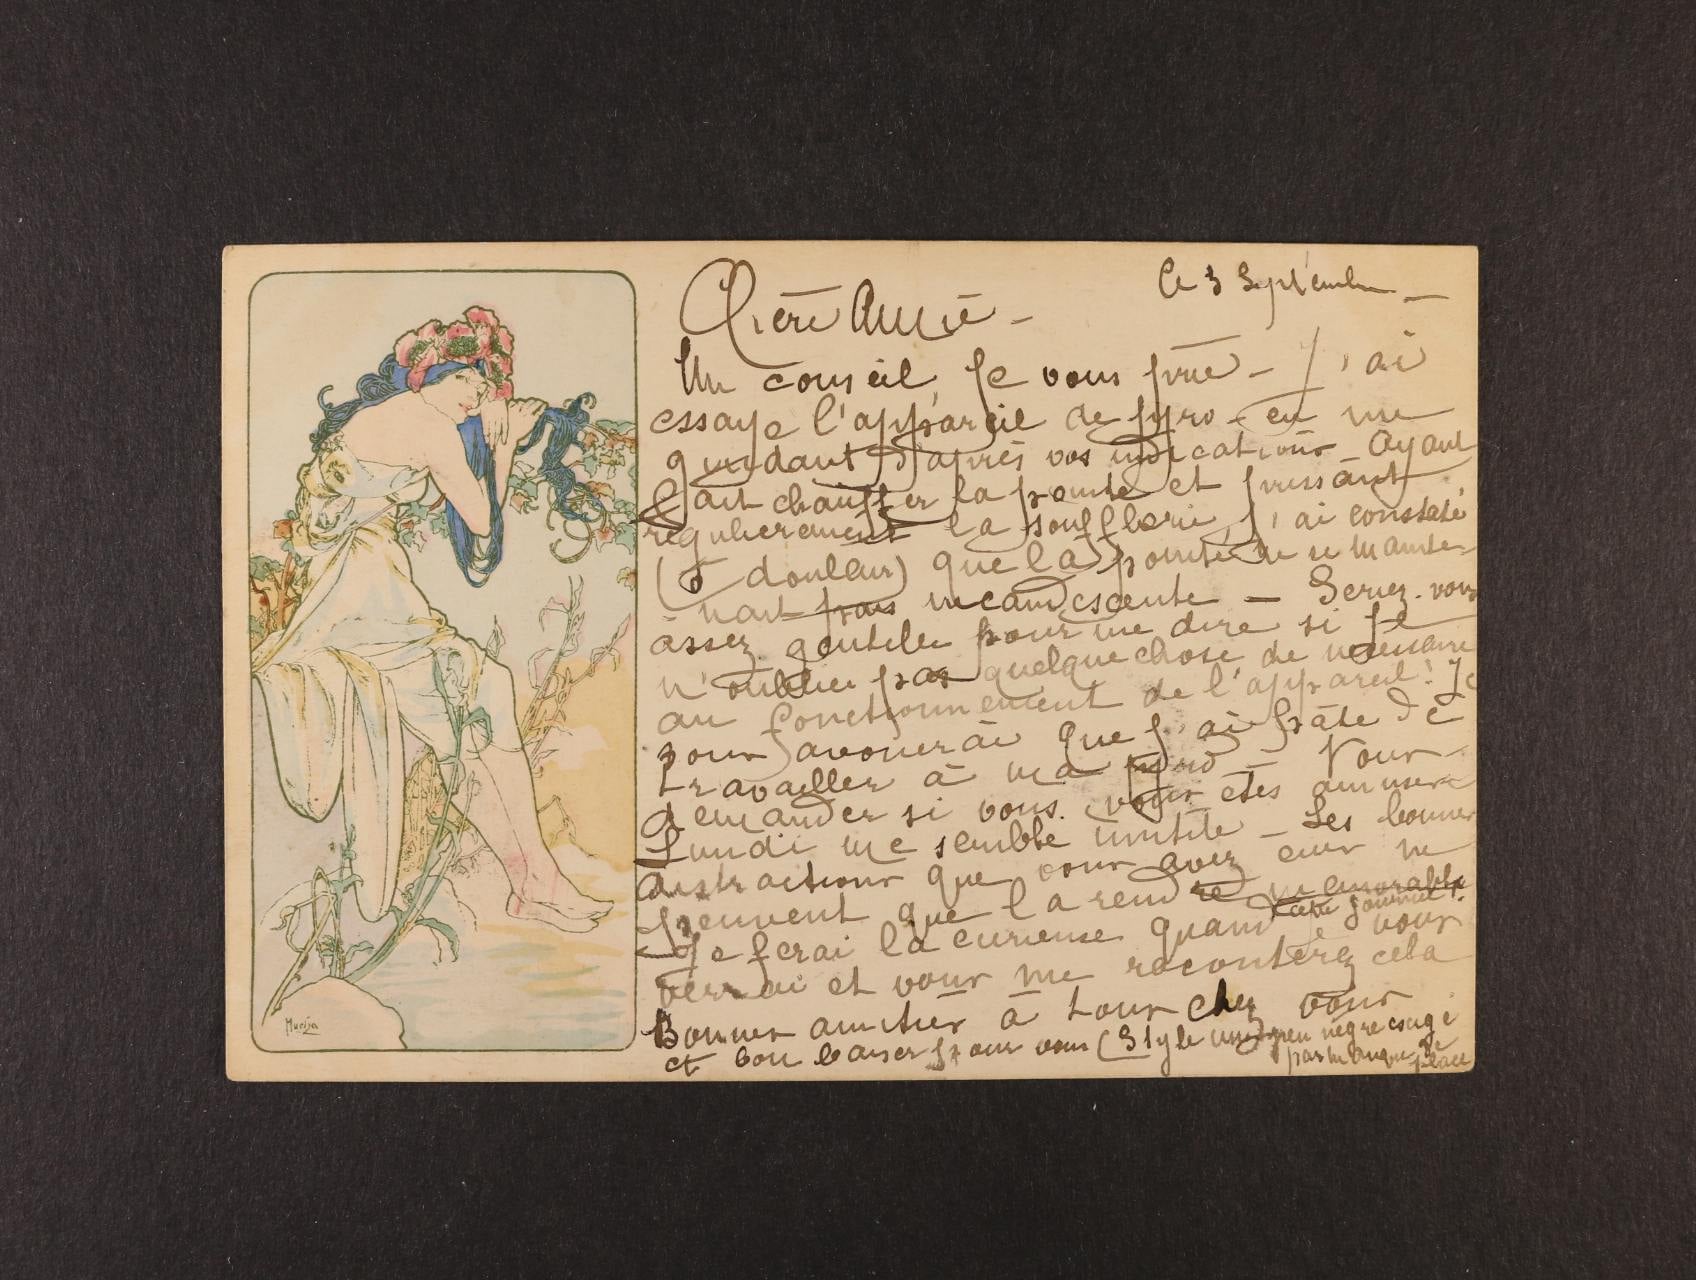 Ce 3 Septembre
Chère Amie -
Un conseil, je vous prie - J'ai
essayé l'appareil de pyro - en me
guidant d'après vos indications - Ayant
fait chauffer la pointe et pressant
régulierement la soufflerie, j'ai constaté
(ô douleur) que la pointe ne se mainte-
nait pas incandescente - Seriez-vous
assez gentille pour me dire si je
n'oublie pas quelque chose de nécessaire
au fonctionnement de l'appareil! Je
vous avouerai que j'ai hâte de
travailler à ma pyro - Vous
demander si vous vous êtes amusée
Lundi me semble inutile - Les bonnes
distractions que vous avez eues ne
peuvent que la rendre mémorable
cette journée.
Je ferai la curieuse quand je vous
verrai et vous me raconterez cela
Bonnes amitiés à tous chez vous
et bon baiser pour vous (Style un peu nègre exigé
par manque de place
Mucha